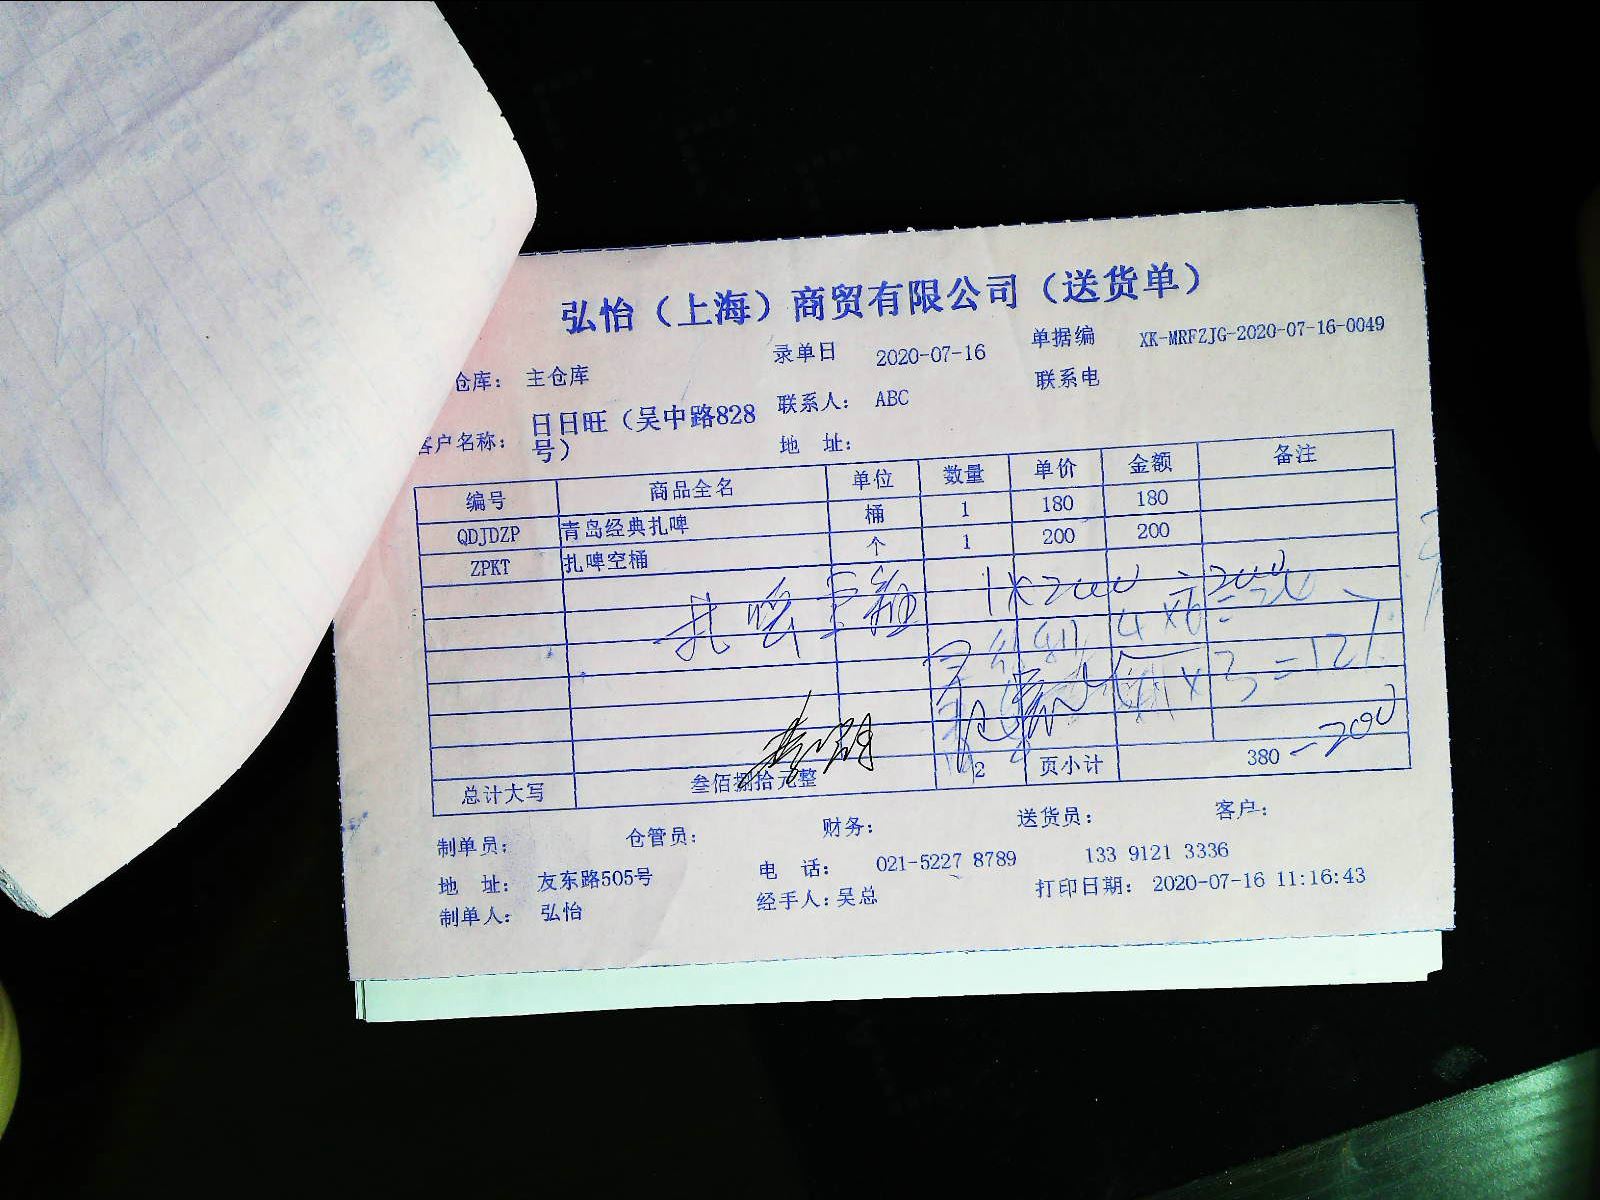 弘怡（上海）商贸有限公司（送货单）
仓库： 主仓库 录单日 2020-07-16 单据编 XK-MRFZJG-2020-07-16-0049
联系人： ABC 联系电
客户名称： 日日旺（吴中路828号） 地 址：
编号 商品全名 单位 数量 单价 金额 备注
QDJDZP 青岛经典扎啤 桶 1 180 180
ZPKT 扎啤空桶 个 1 200 200
扎啤空瓶 1×200 = 200
4×6=24
×3=12
总计大写 叁佰捌拾元整 2 页小计 380 -200
制单员： 仓管员： 财务： 送货员： 客户：
地 址： 友东路505号 电 话： 021-5227 8789 133 9121 3336
制单人： 弘怡 经手人：吴总 打印日期： 2020-07-16 11:16:43